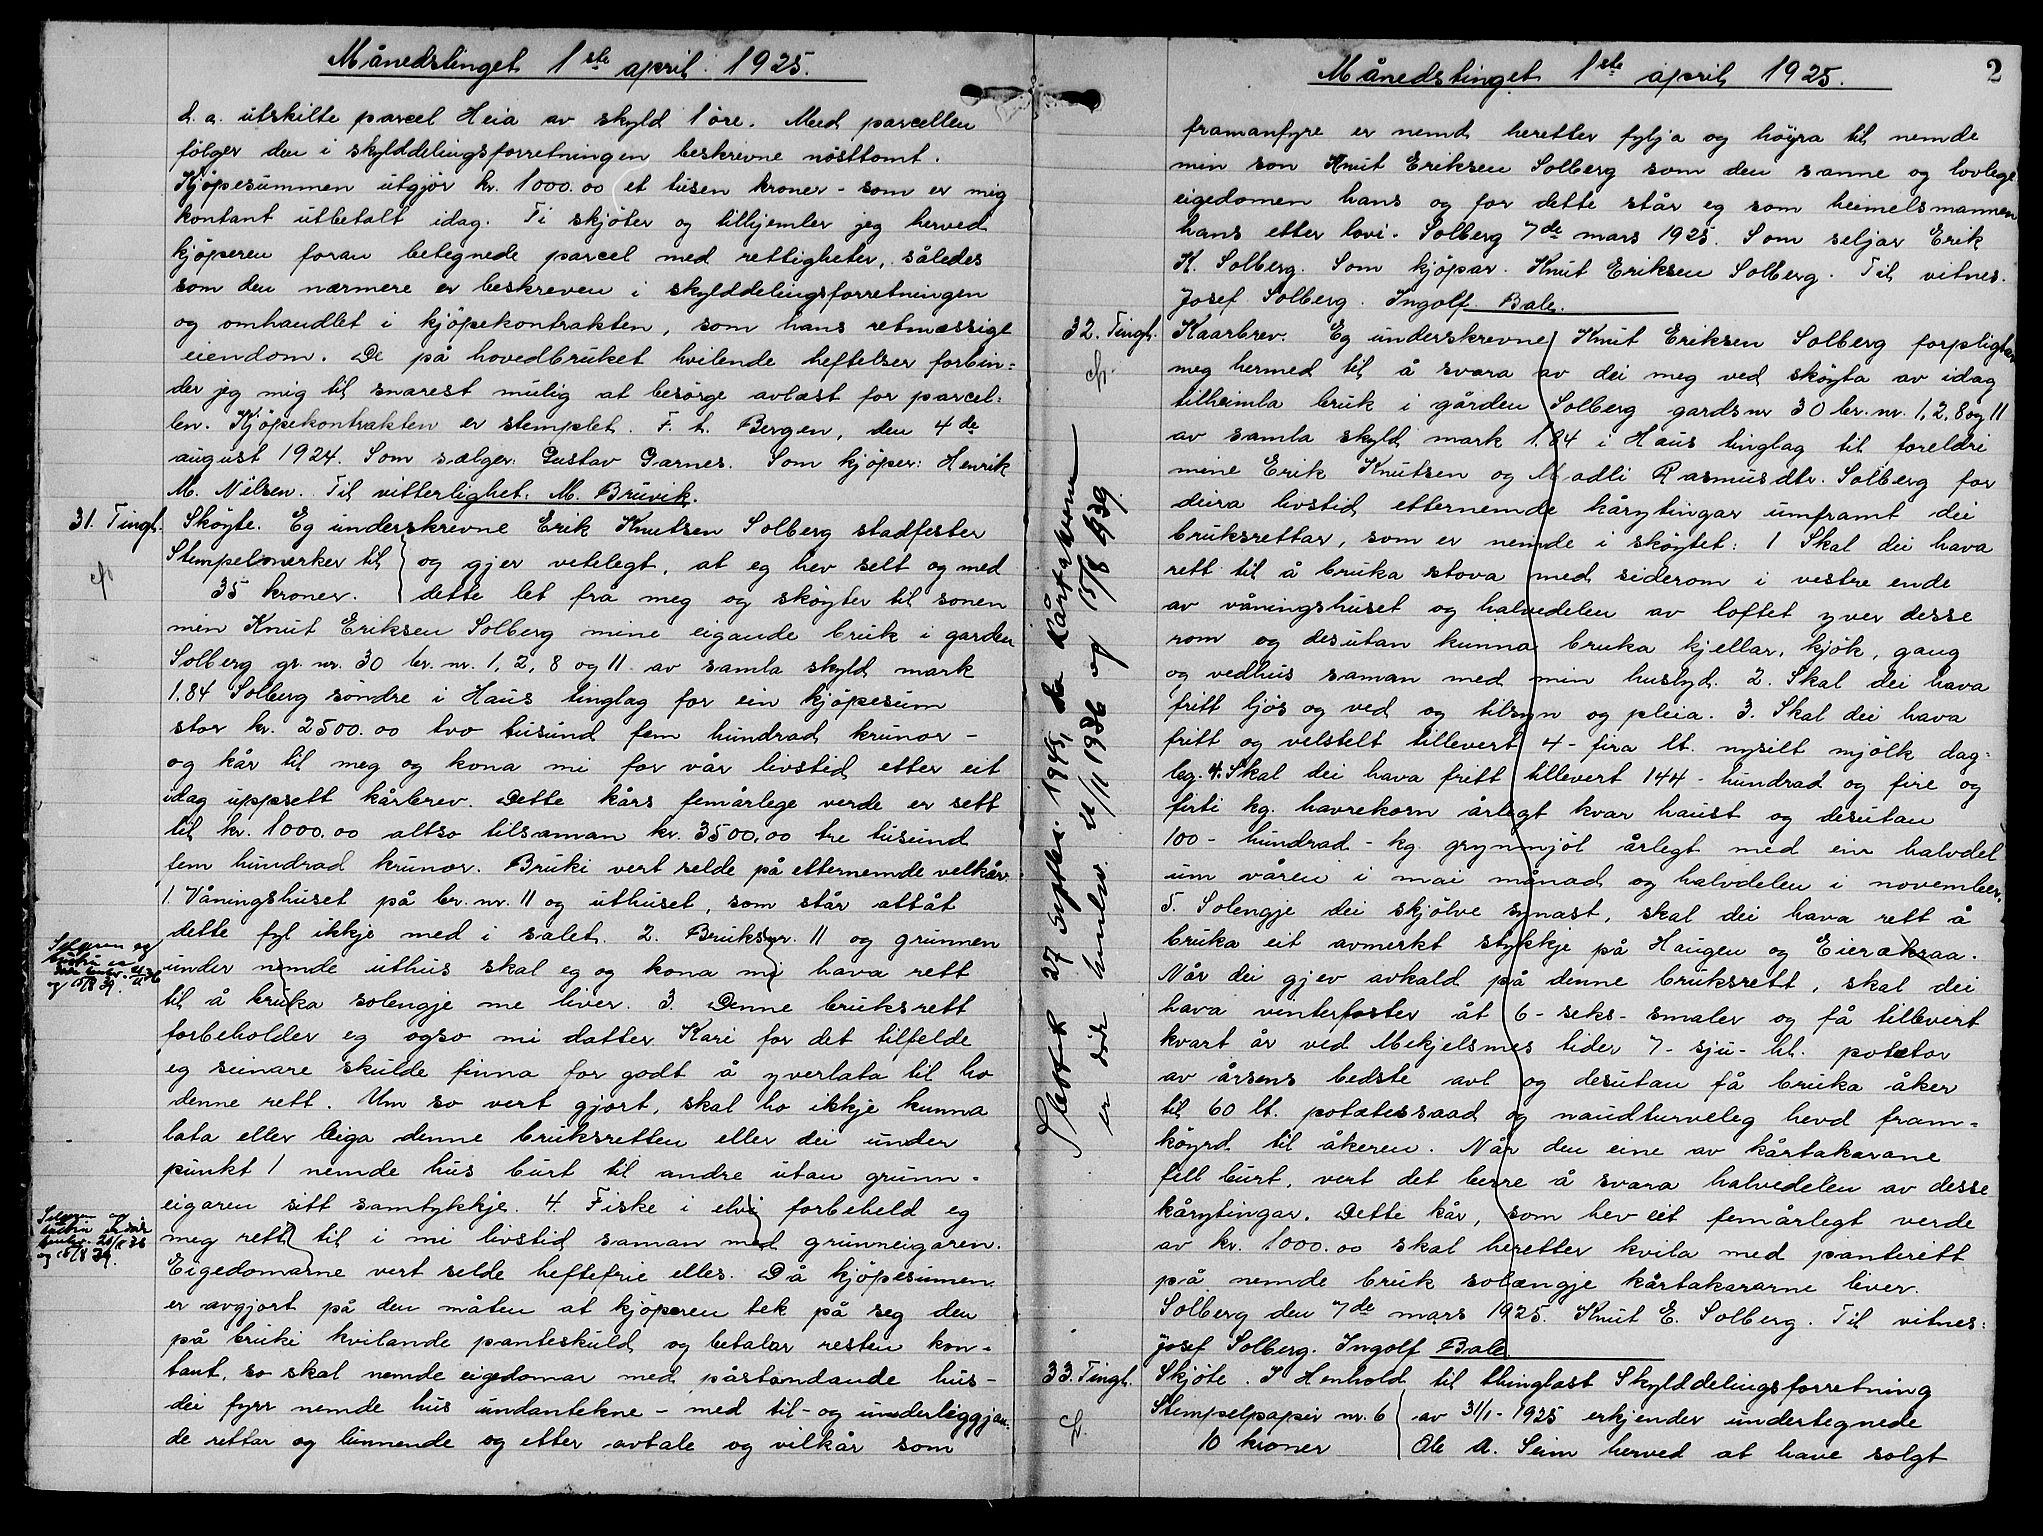 Månedstinget 1ste april. 1925.
d.a. utskilte parcel Heia av skyld 1 øre. Med parcellen
følger den i skylddelingsforretningen beskrevne nøsttomt.
Kjøpesummen utgjør kr. 1000.00 et tusen kroner - som er mig
kontant utbetalt idag. Ti skjøter og tilhjemler jeg herved
kjøperen foran betegnede parcel med rettigheter, således
som den nærmere er beskreven i skylddelingsforretningen
og omhandlet i kjøpekontrakten, som hans retmæssige
eiendom. De på hovedbruket hvilende heftelser forbin=
der jeg mig til snarest mulig at besørge avlæst for parcel=
len. Kjøpekontrakten er stemplet. F. t. Bergen, den 4de
august 1924. Som sælger: Gustav Garnes. Som kjøper: Henrik
M. Nilsen. Til vitterlighet: M. Bruvik.
31. Tingl. Skøyte. Eg underskrevne Erik Knutsen Solberg stadfester
Stempelmerker til og gjer vetelegt, at eg hev selt og med
35 kroner. dette let frå meg og skøyter til sonen
min Knut Eriksen Solberg mine eigande bruk i garden
Solberg gr. nr. 30 br. nr. 1, 2, 8 og 11 av samla skyld mark
1.84 Solberg søndre i Haus tinglag for ein kjøpesum
stor kr. 2500.00 tvo tusund fem hundrad krunor -
og kår til meg og kona mi for vår livstid etter eit
idag uppsett kårbrev. Dette kårs femårlege verde er sett
til kr. 1000.00 altso tilsaman kr. 3500,00 tre tusund
fem hundrad krunor. Bruki vert selde på etternemde velkår.
1. Våningshuset på br. nr. 11 og uthuset, som står attåt
dette fyl ikkje med i salet. 2. Bruksnr. 11 og grunnen
under nemde uthus skal eg og kona mi hava rett
til å bruka solengje me liver. 3. Denne bruksrett
forbeholder eg ogso mi datter Kari for det tilfelde
eg seinare skulde finna for godt å yverlata til ho
denne rett. Um so vert gjort, skal ho ikkje kunna
lata eller leiga denne bruksretten eller dei under
punkt 1 nemde hus burt til andre utan grunn=
eigaren sitt samtykkje. 4. Fiske i elvi forbeheld eg
meg rett til i mi livstid saman med grunneigaren.
Eigedomarne vert selde heftefrie elles. Då kjøpesumen
er avgjort på den måten at kjøperen tek på seg den
på bruki kvilande panteskuld og betaler resten kon=
tant, so skal nemde eigedomar med påståndande hus-
dei fyrr nemde hus undantekne - med til- og underliggjan=
de rettar og lunnende og etter avtale og vilkår som
Månedstinget 1ste april 1925.
2
framanfyre er nemd heretter fylja og høyra til nemde
min son Knut Eriksen Solberg som den sanne og lovlege
eigedomen hans og for dette står eg som heimelsmannen
hans etter lovi. Solberg 7de mars 1925. Som seljar Erik
K. Solberg. Som kjøpar. Knut Eriksen Solberg. Til vitnes.
Josef Solberg. Ingolf Bale.
32. Tingl. Kaarbrev. Eg underskrevne Knut Eriksen Solberg forpligtar
meg hermed til å svara av dei meg ved skøyta av idag
tilheimla bruk i gården Solberg gardsnr 30 br. nr. 1, 2, 8 og 11
av samla skyld mark 1.84 i Haus tinglag til foreldri
mine Erik Knutsen og Madli Rasmusdtr. Solberg for
deira livstid etternemde kårytingar umframt dei
bruksrettar, som er nemde i skøytet: 1 Skal dei hava
rett til å bruka stova med siderom i vestre ende
av våningshuset og halvedelen av loftet yver desse
rom og desutan kunna bruka kjellar, kjøk, gang
og vedhus saman med min huslyd. 2. Skal dei hava
fritt ljos og ved og tilsyn og pleia. 3. Skal dei hava
fritt og velstelt tillevert 4 - fira lt. nysilt mjølk dag=
leg. 4. Skal dei hava fritt tillevert 144 - hundrad og fire og
firti kg. havrekorn årlegt kvar haust og desutan
100 - hundrad - kg grynmjøl årlegt med ein halvdel
um våren i mai månad og halvdelen i november.
5. Solengje dei skjølve synast, skal dei hava rett å
bruka eit avmerkt stykkje på Haugen og Eieræksaa.
Når dei gjev avkald på denne bruksrett, skal dei
hava venterfoster åt 6 - seks - smaler og få tillevert
kvart år ved Mekjelsmes tider 7 - sju - hl. potetor
av årsens bedste avl og desutan få bruka åker
til 60 lt. potetessaad og naudturveleg hevd fram=
køyrd til åkeren. Når den eine av kårtakarane
fell burt, vert det berre å svara halvedelen av desse
kårytingar. Dette kår, som hev eit femårlegt verde
av kr. 1000.00 skal heretter kvila med panterett
på nemde bruk solængje kårtakararne liver.
Solberg den 7de mars 1925. Knut E. Solberg. Til vitnes:
Josef Solberg. Ingolf Bale.
33. Tingl. Skjøte. I Henhold til thinglæst Skylddelingsforretning
Stempelpapir nr. 6 av 31/1 - 1925 erkjender undertegnede
10 kroner Ole A. Seim herved at have solgt
Slettet 27 septbr. 1945, da kårtakerne
er døde henholdsv. 21/11 1936 og 15/8 1939.